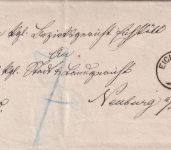 kgl. Bezirksgericht Eichstätt
An
kgl. Stadt & Landgericht
Neuburg a/
EIC